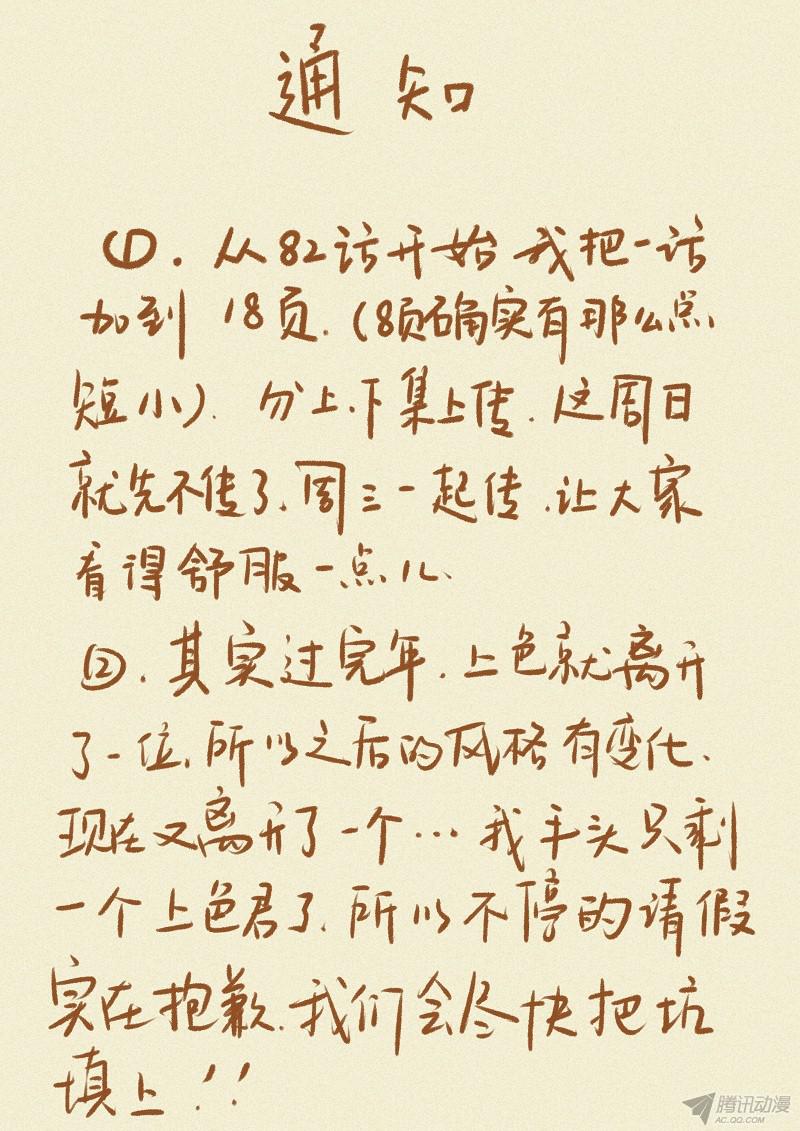 通知
①.从82话开始我把一话
加到18页.(8页确实有那么点
短小).分上.下集上传.这周日
就先不传了.周三一起传.让大家
看得舒服一点儿.
②.其实过完年.上色就离开
了一位.所以之后的风格有变化.
现在又离开了一个…我手头只剩
一个上色君了.所以不停的请假
实在抱歉.我们会尽快把坑
填上!!
腾讯动漫
AC.QQ.COM